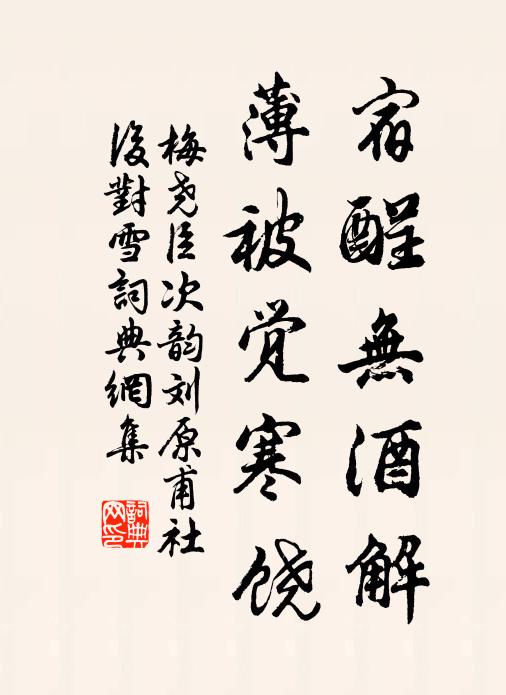 宿醒無酒解
薄被觉寒饶
梅尧臣次韵刘原甫社
後對雪詞典網集
詞典
网印